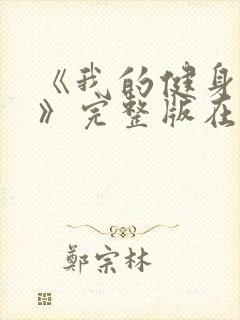 《我的健身
》完整版在
鄭宗林